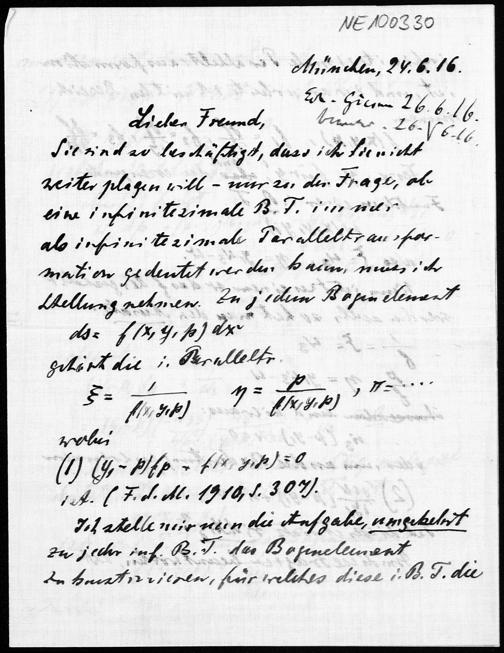 NE100330
München, 24.6.16.
26.6.16.
26. 6.16.
Lieber Freund,
Sie sind so beschäftigt, dass ich Sie nicht
weiter plagen will – nur zu der Frage, ob
eine infinitezimale B. T. immer
als infinitezimale Paralleltransfor-
mation gedeutet werden kann, muss ich
Stellung nehmen. Zu jedem Bogenelement
ds = f(x, y, p) dx
gehört die i. Paralleltr.
ξ = 1/f(x, y, p) η = p/f(x, y, p), π = ....
wobei
(1) (y₁ - p) fp - f(x y, p) = 0
ist. (F. d. M. 1910, S. 307).
Ich stelle mir nun die Aufgabe, umgekehrt
zu jeder inf. B. T. das Bogenelement
zu konstruieren, für welches diese i. B. T. die